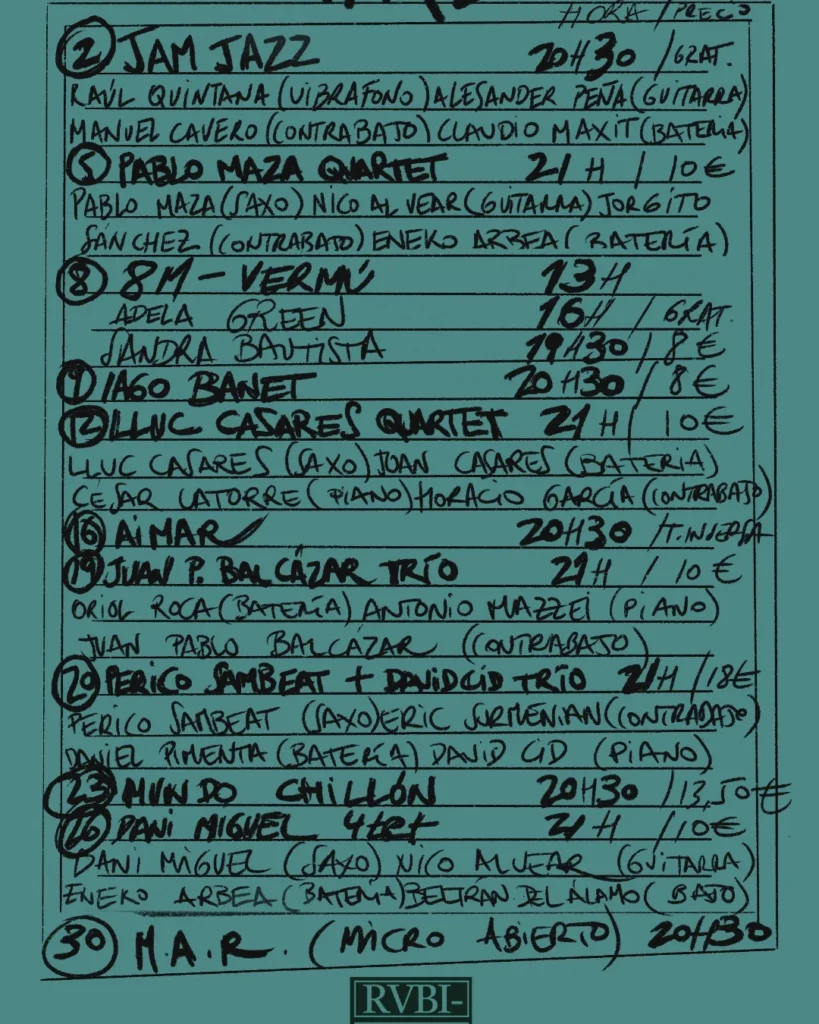 HORA / PRECIO
2 JAM JAZZ 20H30 / GRAT.
RAÚL QUINTANA (VIBRAFONO) ALESANDER PEÑA (GUITARRA)
MANUEL CAVERO (CONTRABAJO) CLAUDIO MAXIT (BATERIA)
5 PABLO MAZA QUARTET 21 H / 10 €
PABLO MAZA (SAXO) NICO ALVEAR (GUITARRA) JORGITO
SÁNCHEZ (CONTRABAJO) ENEKO ARBEA (BATERÍA)
8 8M - VERMÚ 13H
ADELA GREEN 16H / GRAT.
SANDRA BAUTISTA 19H30 / 8 €
9 IAGO BANET 20H30 / 8€
12 LLUC CASARES QUARTET 21 H / 10€
LLUC CASARES (SAXO) JOAN CASARES (BATERIA)
CÉSAR LATORRE (PIANO) HORACIO GARCÍA (CONTRABAJO)
16 AIMAR 20H30 / T. INVERSA
19 JUAN P. BALCÁZAR TRÍO 21H / 10 €
ORIOL ROCA (BATERÍA) ANTONIO MAZZEI (PIANO)
JUAN PABLO BALCÁZAR (CONTRABAJO)
20 PERICO SAMBEAT + DAVID CID TRÍO 21H / 18€
PERICO SAMBEAT (SAXO) ERIC SURMENIAN (CONTRABAJO)
DANIEL PIMENTA (BATERÍA) DAVID CID (PIANO)
23 MUNDO CHILLÓN 20H30 / 13,50 €
26 DANI MIGUEL 4tet 21 H / 10€
DANI MIGUEL (SAXO) NICO ALVEAR (GUITARRA)
ENEKO ARBEA (BATERÍA) BELTRÁN DEL ÁLAMO (BAJO)
30 M.A.R. (MICRO ABIERTO) 20H30
RVBI-